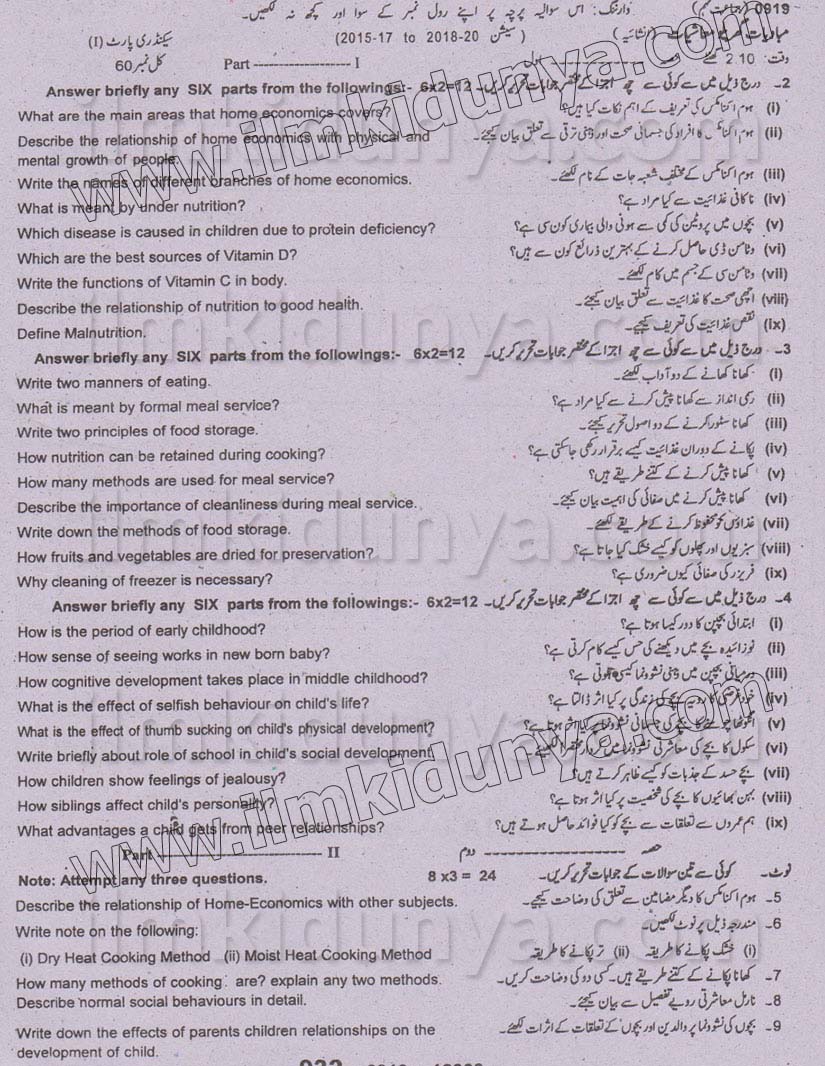 0919 وارننگ: اس سوالیہ پرچہ پر اپنے رول نمبر کے سوا اور کچھ نہ لکھیں۔
سیکنڈری پارٹ (I) (2015-17 to 2018-20 سیشن) (انشائیہ)
کل نمبر 60 Part -------------------- I وقت 2.10 گھنٹے
Answer briefly any SIX parts from the followings:- 6x2=12 2۔ درج ذیل میں سے کوئی سے چھ اجزا کے مختصر جوابات تحریر کریں۔
What are the main areas that home economics covers? (i) ہوم اکنامکس کی تعریف کے اہم نکات کیا ہیں؟
Describe the relationship of home economics with physical and (ii) ہوم اکنامکس کا افراد کی جسمانی صحت اور ذہنی ترقی سے تعلق بیان کیجئے۔
mental growth of people.
Write the names of different branches of home economics. (iii) ہوم اکنامکس کے مختلف شعبہ جات کے نام لکھئے۔
What is meant by under nutrition? (iv) ناکافی غذائیت سے کیا مراد ہے؟
Which disease is caused in children due to protein deficiency? (v) بچوں میں پروٹین کی کمی سے ہونی والی بیماری کون سی ہے؟
Which are the best sources of Vitamin D? (vi) وٹامن ڈی حاصل کرنے کے بہترین ذرائع کون سے ہیں؟
Write the functions of Vitamin C in body. (vii) وٹامن سی کے جسم میں کام لکھئے۔
Describe the relationship of nutrition to good health. (viii) اچھی صحت کا غذائیت سے تعلق بیان کیجئے۔
Define Malnutrition. (ix) نقص غذائیت کی تعریف کیجیے۔
Answer briefly any SIX parts from the followings:- 6x2=12 3۔ درج ذیل میں سے کوئی سے چھ اجزا کے مختصر جوابات تحریر کریں۔
Write two manners of eating. (i) کھانا کھانے کے دو آداب لکھئے۔
What is meant by formal meal service? (ii) رسمی انداز سے کھانا پیش کرنے سے کیا مراد ہے؟
Write two principles of food storage. (iii) کھانا سٹور کرنے کے دو اصول تحریر کیجئے۔
How nutrition can be retained during cooking? (iv) پکانے کے دوران غذائیت کیسے برقرار رکھی جا سکتی ہے؟
How many methods are used for meal service? (v) کھانا پیش کرنے کے کتنے طریقے ہیں؟
Describe the importance of cleanliness during meal service. (vi) کھانا پیش کرنے میں صفائی کی اہمیت بیان کیجئے۔
Write down the methods of food storage. (vii) غذاؤں کو محفوظ کرنے کے طریقے لکھئے۔
How fruits and vegetables are dried for preservation? (viii) سبزیوں اور پھلوں کو کیسے خشک کیا جاتا ہے؟
Why cleaning of freezer is necessary? (ix) فریزر کی صفائی کیوں ضروری ہے؟
Answer briefly any SIX parts from the followings:- 6x2=12 4۔ درج ذیل میں سے کوئی سے چھ اجزا کے مختصر جوابات تحریر کریں۔
How is the period of early childhood? (i) ابتدائی بچپن کا دور کیسا ہوتا ہے؟
How sense of seeing works in new born baby? (ii) نوزائیدہ بچے میں دیکھنے کی حس کیسے کام کرتی ہے؟
How cognitive development takes place in middle childhood? (iii) درمیانی بچپن میں ذہنی نشوونما کیسی ہوتی ہے؟
What is the effect of selfish behaviour on child's life? (iv) بچے کی زندگی پر کیا اثر ڈالتا ہے؟
What is the effect of thumb sucking on child's physical development? (v) بچے کی جسمانی نشوونما پر کیا اثر ہوتا ہے؟
Write briefly about role of school in child's social development. (vi) سکول کا بچے کی معاشرتی نشوونما میں
How children show feelings of jealousy? (vii) بچے حسد کے جذبات کو کیسے ظاہر کرتے ہیں؟
How siblings affect child's personality? (viii) بہن بھائیوں کا بچے کی شخصیت پر کیا اثر ہوتا ہے؟
What advantages a child gets from peer relationships? (ix) ہم عمروں سے تعلقات سے بچے کو کیا فوائد حاصل ہوتے ہیں؟
Part -------------------- II حصہ -------------------- دوم
Note: Attempt any three questions. 8 x3 = 24 نوٹ۔ کوئی سے تین سوالات کے جوابات تحریر کریں۔
Describe the relationship of Home-Economics with other subjects. 5۔ ہوم اکنامکس کا دیگر مضامین سے تعلق کی وضاحت کیجیے۔
Write note on the following: 6۔ مندرجہ ذیل پر نوٹ لکھیں۔
(i) Dry Heat Cooking Method (ii) Moist Heat Cooking Method (i) خشک پکانے کا طریقہ (ii) تر پکانے کا طریقہ
How many methods of cooking are? explain any two methods. 7۔ کھانا پکانے کے کتنے طریقے ہیں۔ کسی دو کی وضاحت کریں۔
Describe normal social behaviours in detail. 8۔ نارمل معاشرتی رویے تفصیل سے بیان کیجئے۔
Write down the effects of parents children relationships on the 9۔ بچوں کی نشوونما پر والدین اور بچوں کے تعلقات کے اثرات لکھئے۔
development of child.
www.ilmkidunya.com
ilmkidunya.com
ilmkidunya.com
ilmkidunya.com
ilmkidunya.com
www.ilmkidunya.com
ilmkidunya.com